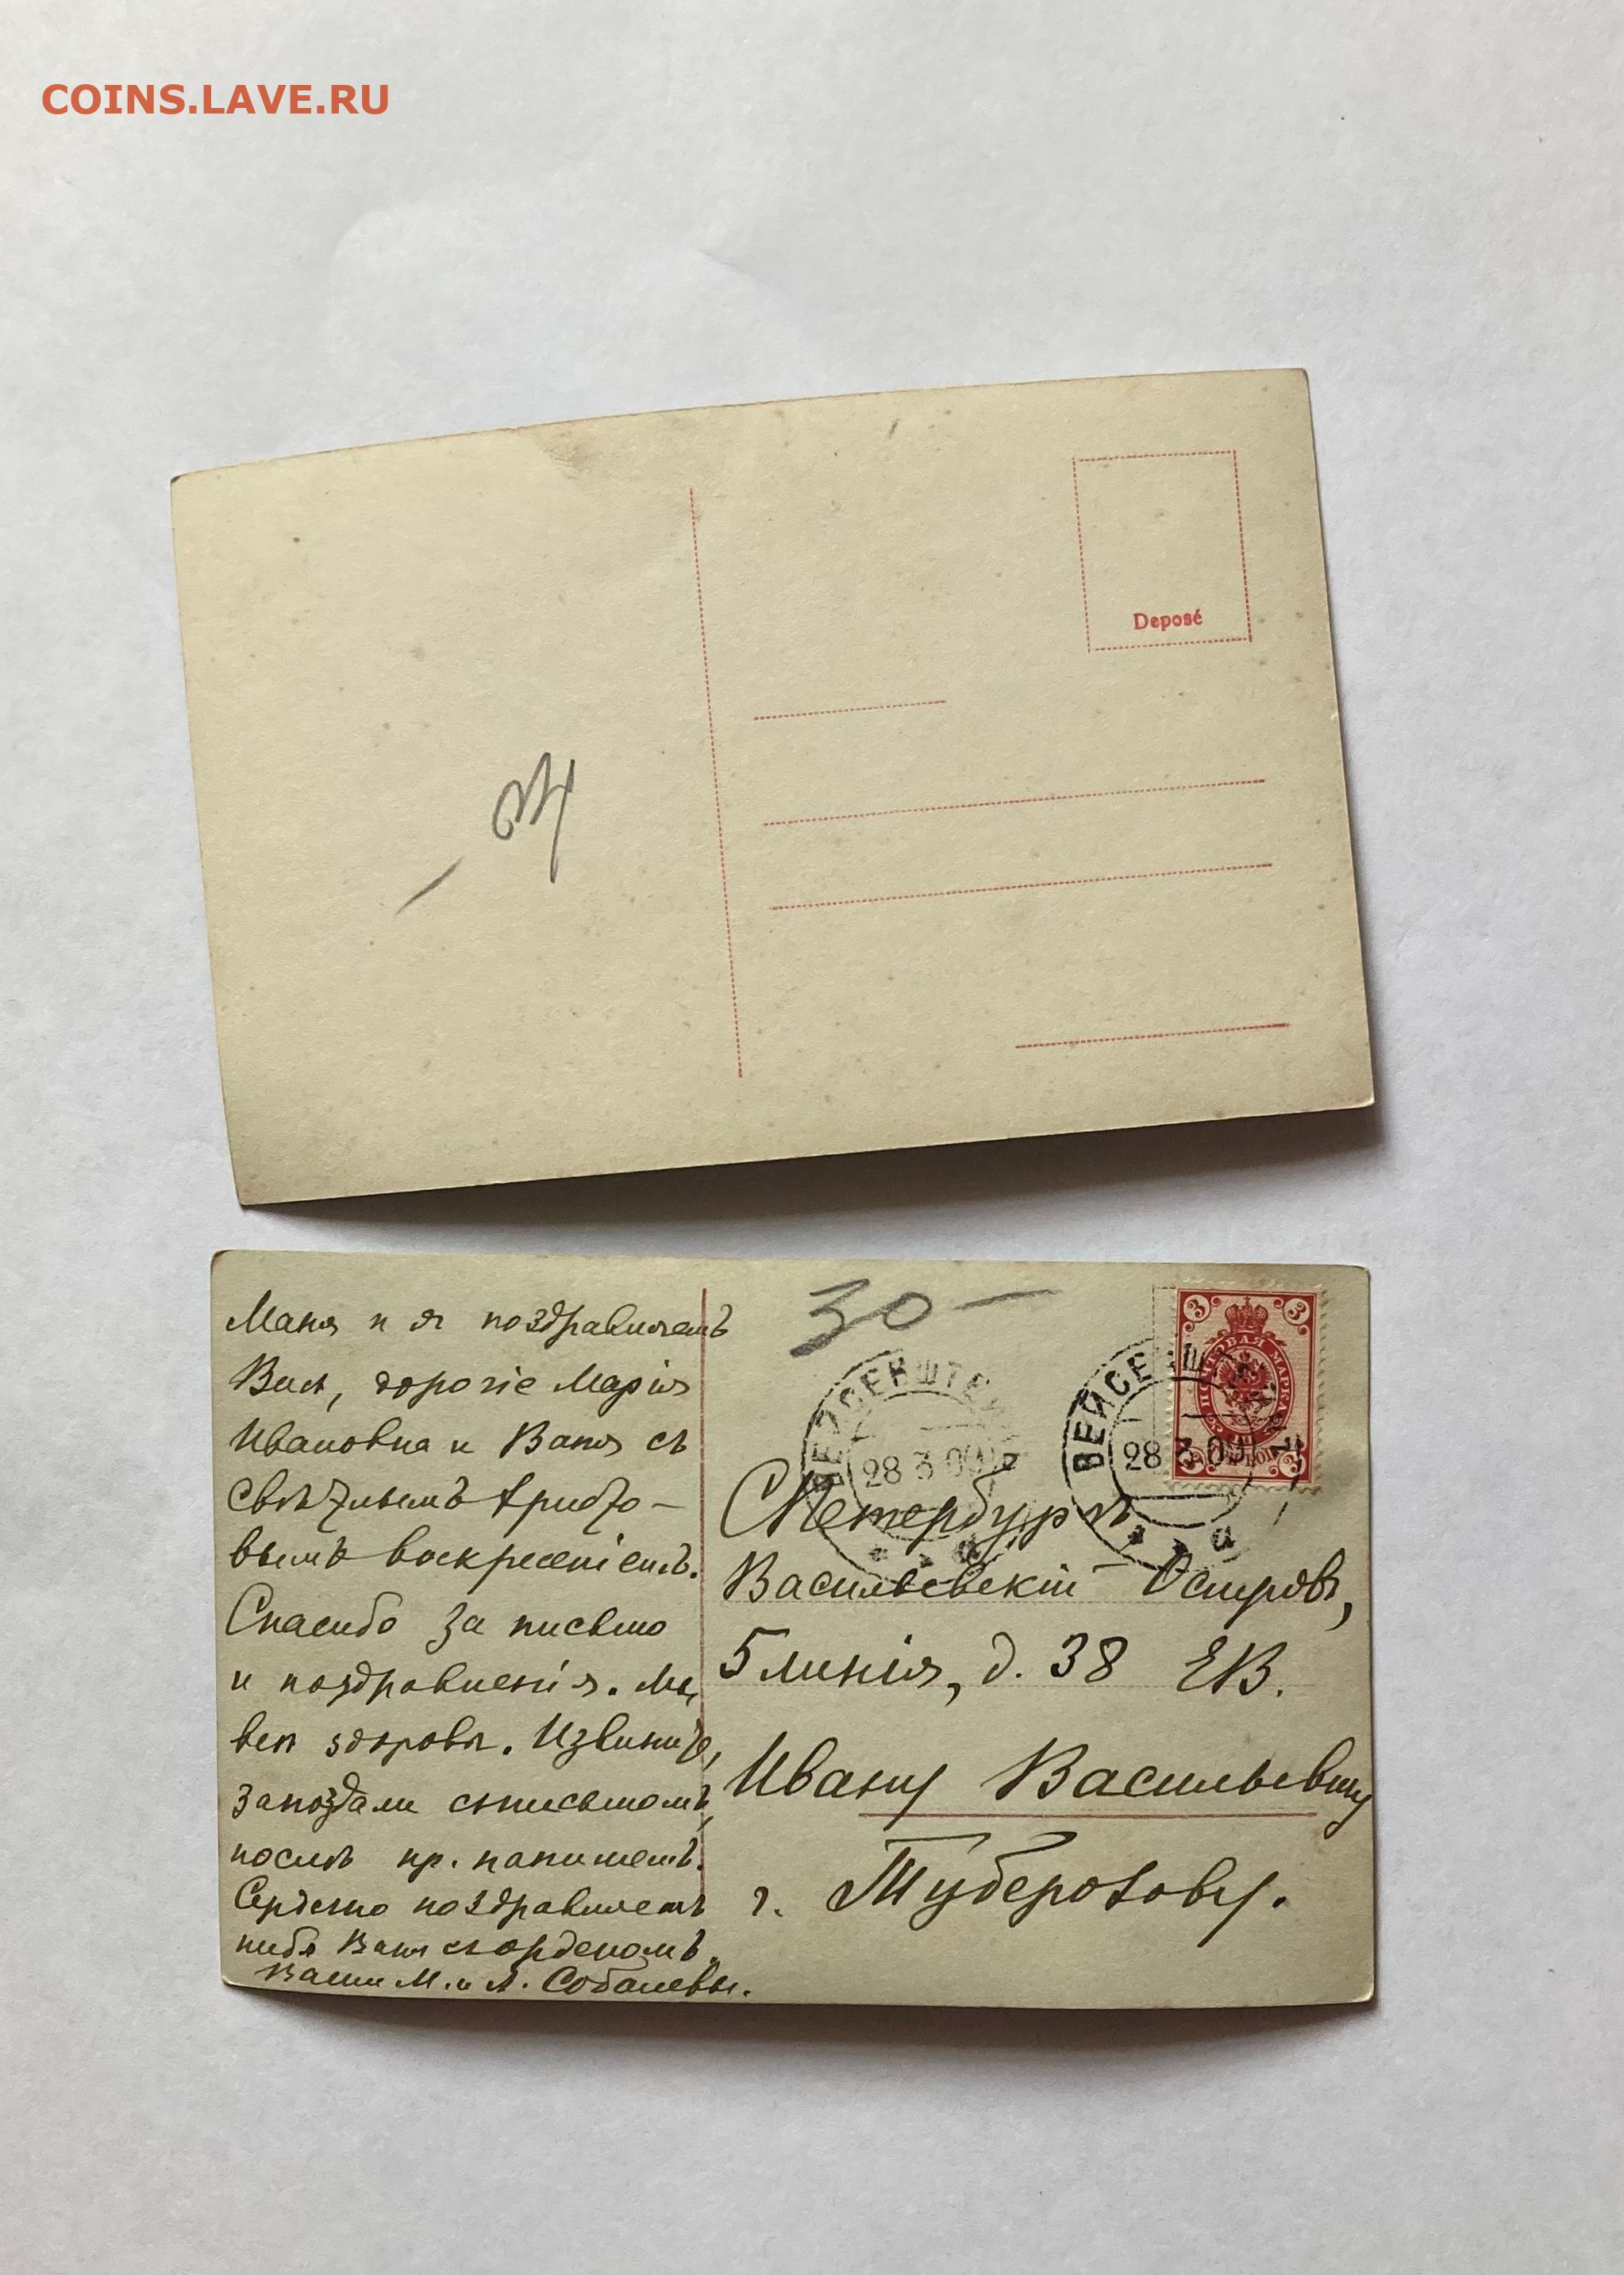 COINS.LAVE.RU
Deposé
30 —
Маня и я поздравляемъ
Васъ, дорогіе Марія
Ивановна и Ваня съ
свѣтлымъ Христо-
вымъ воскресеніемъ.
Спасибо за письмо
и поздравленія. Мы
всѣ здоровы. Извините,
запоздали съ письмомъ,
послѣ пр. напишемъ.
Сердечно поздравляемъ
тебя Ваня съ орденомъ.
Ваши М. и А. Соболевы.
3 3
ПОЧТОВАЯ МАРКА
ВЕЙСЕНШТЕЙН
28 3 09
ВЕЙСЕНШ
28 3 09
а
СПетербургъ
Васильевскій Островъ,
5 линія, д. 38 ЕВ.
Ивану Васильевичу
г. Туберозову.